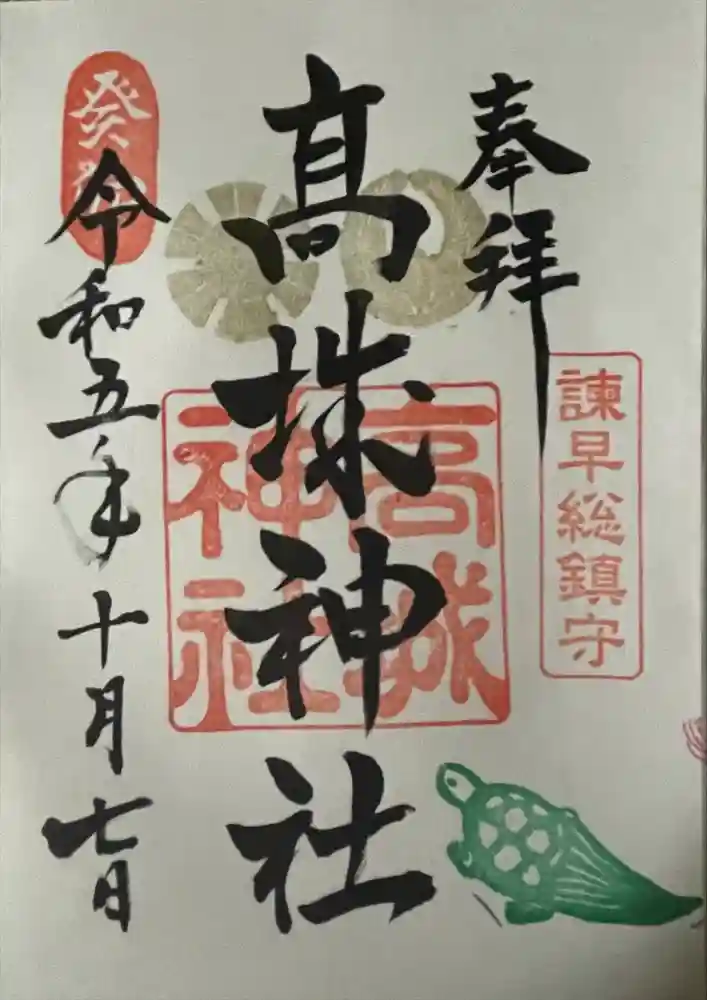 奉拝
諫早総鎮守
髙城神社
高城神社
癸卯
令和五年十月七日